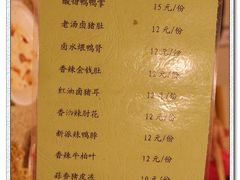 酸甜鸭鸭掌 15元/份
老汤卤猪肚 12元/份
卤水煨鸭肾 12元/份
香辣金钱肚 12元/份
红油卤猪耳 12元/份
香汤辣肘花 12元/份
新派辣鸭脖 12元/份
香辣牛柏叶 12元/份
蒜香猪皮冻 10元/份